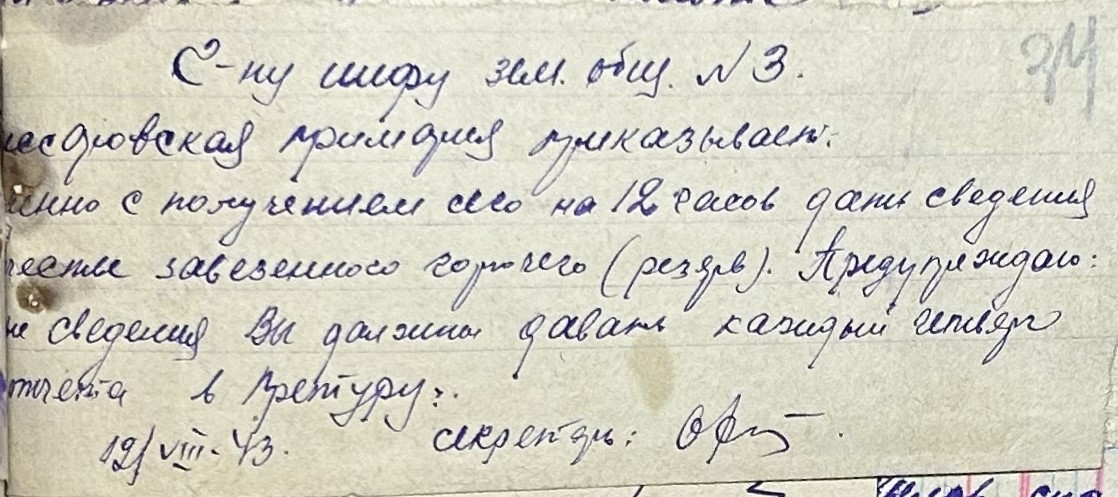 С-ну шефу зем. общ. №3.
34
примария приказывает:
с получением сего на 12 часов дать сведения
завезенного горючего (резерв). Предупреждаю:
сведения Вы должны давать каждый четверг
в Претуру:.
12/VIII-43. секретарь: